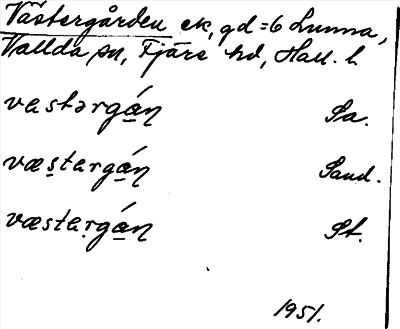 Västergården ek, gd = 6 Lunna,
Vallda sn, Fjäre hd, Hall. l.
vastərgán Sa.
væstargán Sand.
væstargán St.
1951.